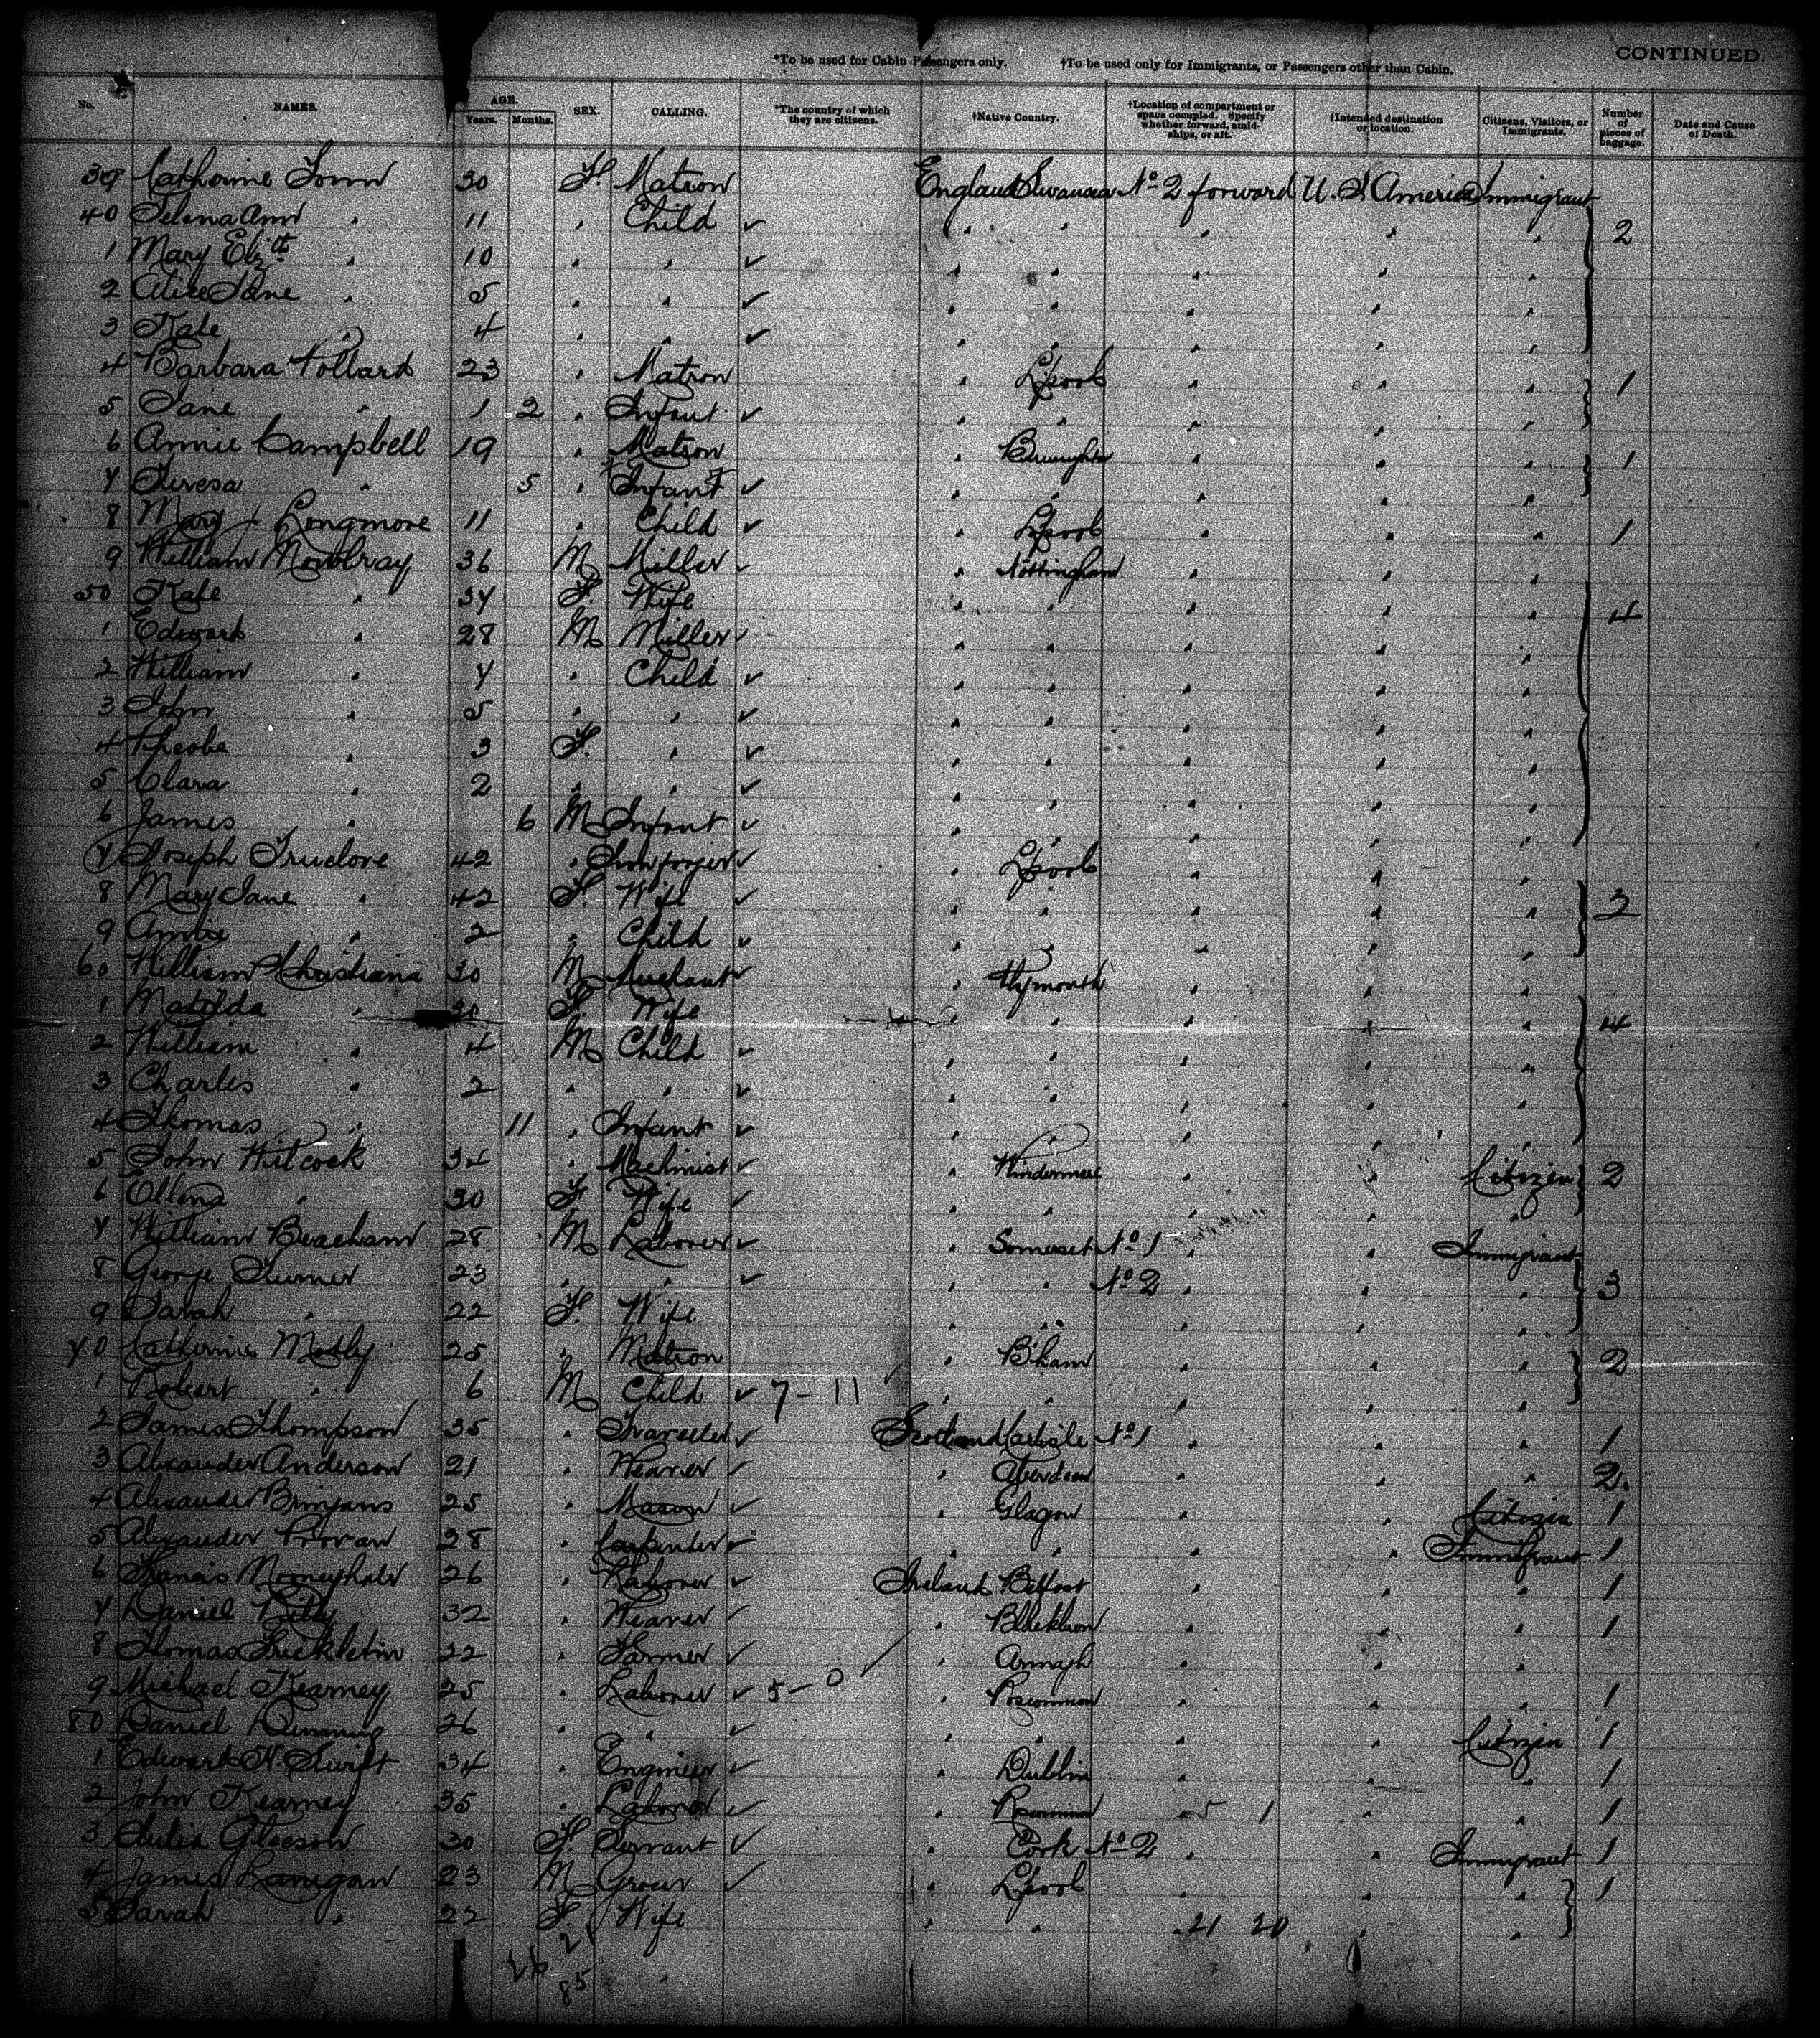 CONTINUED.
*To be used for Cabin Passengers only. †To be used only for Immigrants, or Passengers other than Cabin.
No. NAMES. AGE. Years. Months. SEX. CALLING. *The country of which they are citizens. †Native Country. †Location of compartment or space occupied. Specify whether forward, amidships, or aft. †Intended destination or location. Citizens, Visitors, or Immigrants. Number of pieces of baggage. Date and Cause of Death.
39 Catherine 30 F. Matron England Swansea No 2 forward U. S. America Immigrant
40 Selena Ann " 11 " Child ✓ " " " " " 2
1 Mary Elizth " 10 " " ✓ " " " " "
2 Alice Jane " 5 " " ✓ " " " " "
3 Kate " 4 " " ✓ " " " " "
4 Barbara Pollard 23 " Matron " L'pool " " " 1
5 Jane " 1 2 " Infant ✓ " " " " "
6 Annie Campbell 19 " Matron " " " " 1
7 Teresa " 5 " Infant ✓ " " " " "
8 Mary Longmore 11 " Child ✓ " L'pool " " " 1
9 William Mowbray 36 M Miller ✓ " Nottingham " " "
50 Kate " 34 F. Wife " " " " " 4
1 Edward " 28 M Miller ✓ " " " " "
2 William " 7 " Child ✓ " " " " "
3 John " 5 " " ✓ " " " " "
4 Pheobe " 3 F. " ✓ " " " " "
5 Clara " 2 " " ✓ " " " " "
6 James " 6 M Infant ✓ " " " " "
7 Joseph Truelove 42 " ✓ " L'pool " " "
8 Mary Jane " 42 F. Wife ✓ " " " " " 3
9 " 2 " Child ✓ " " " " "
60 William Christiana 30 M Merchant ✓ " Plymouth " " "
1 Matilda " F. Wife " " " " " 4
2 William " 4 M Child ✓ " " " " "
3 Charles " 2 " " ✓ " " " " "
4 Thomas " 11 " Infant ✓ " " " " "
5 John Witcock 34 " Machinist ✓ " Windermere " Citizen 2
6 Ellena " 30 F. Wife ✓ " " " "
7 William Beacham 28 M Laborer ✓ " Somerset No 1 " " Immigrant
8 George Turner 23 " " ✓ " " No 2 " " " 3
9 Sarah " 22 F. Wife " " " " "
70 Catherine 25 " Matron " B'ham " " " 2
1 Robert " 6 M Child ✓ 7 - 11 " " " " "
2 James Thompson 35 " Traveller ✓ Scotland Carlisle No 1 " " " 1
3 Alexander Anderson 21 " Weaver ✓ " Aberdeen " " " 2.
4 Alexander 25 " Mason ✓ Glagow " Citizen 1
5 Alexander Provan 28 " Carpenter ✓ " " " " Immigrant 1
6 Francis 26 " Laborer ✓ Ireland Belfast " " " 1
7 Daniel 32 " Weaver ✓ " " " " 1
8 Thomas 22 " Farmer ✓ Armagh " " "
9 Michael Kearney 25 " Laborer ✓ 5 - 0 ✓ " Roscommon " " " 1
80 Daniel 26 " " ✓ " " " " Citizen 1
1 Edward H. Swift 34 " Engineer ✓ " Dublin " " " 1
2 John Kearney 35 " Laborer ✓ " Roscommon " 5 1 " " 1
3 Julia Gleeson 30 F. Servant ✓ " Cork No 2 " " Immigrant 1
4 James Lanigan 23 M Grocer ✓ " L'pool " " " 1
5 Sarah " 22 F. Wife " " 21 20 " "
21
85